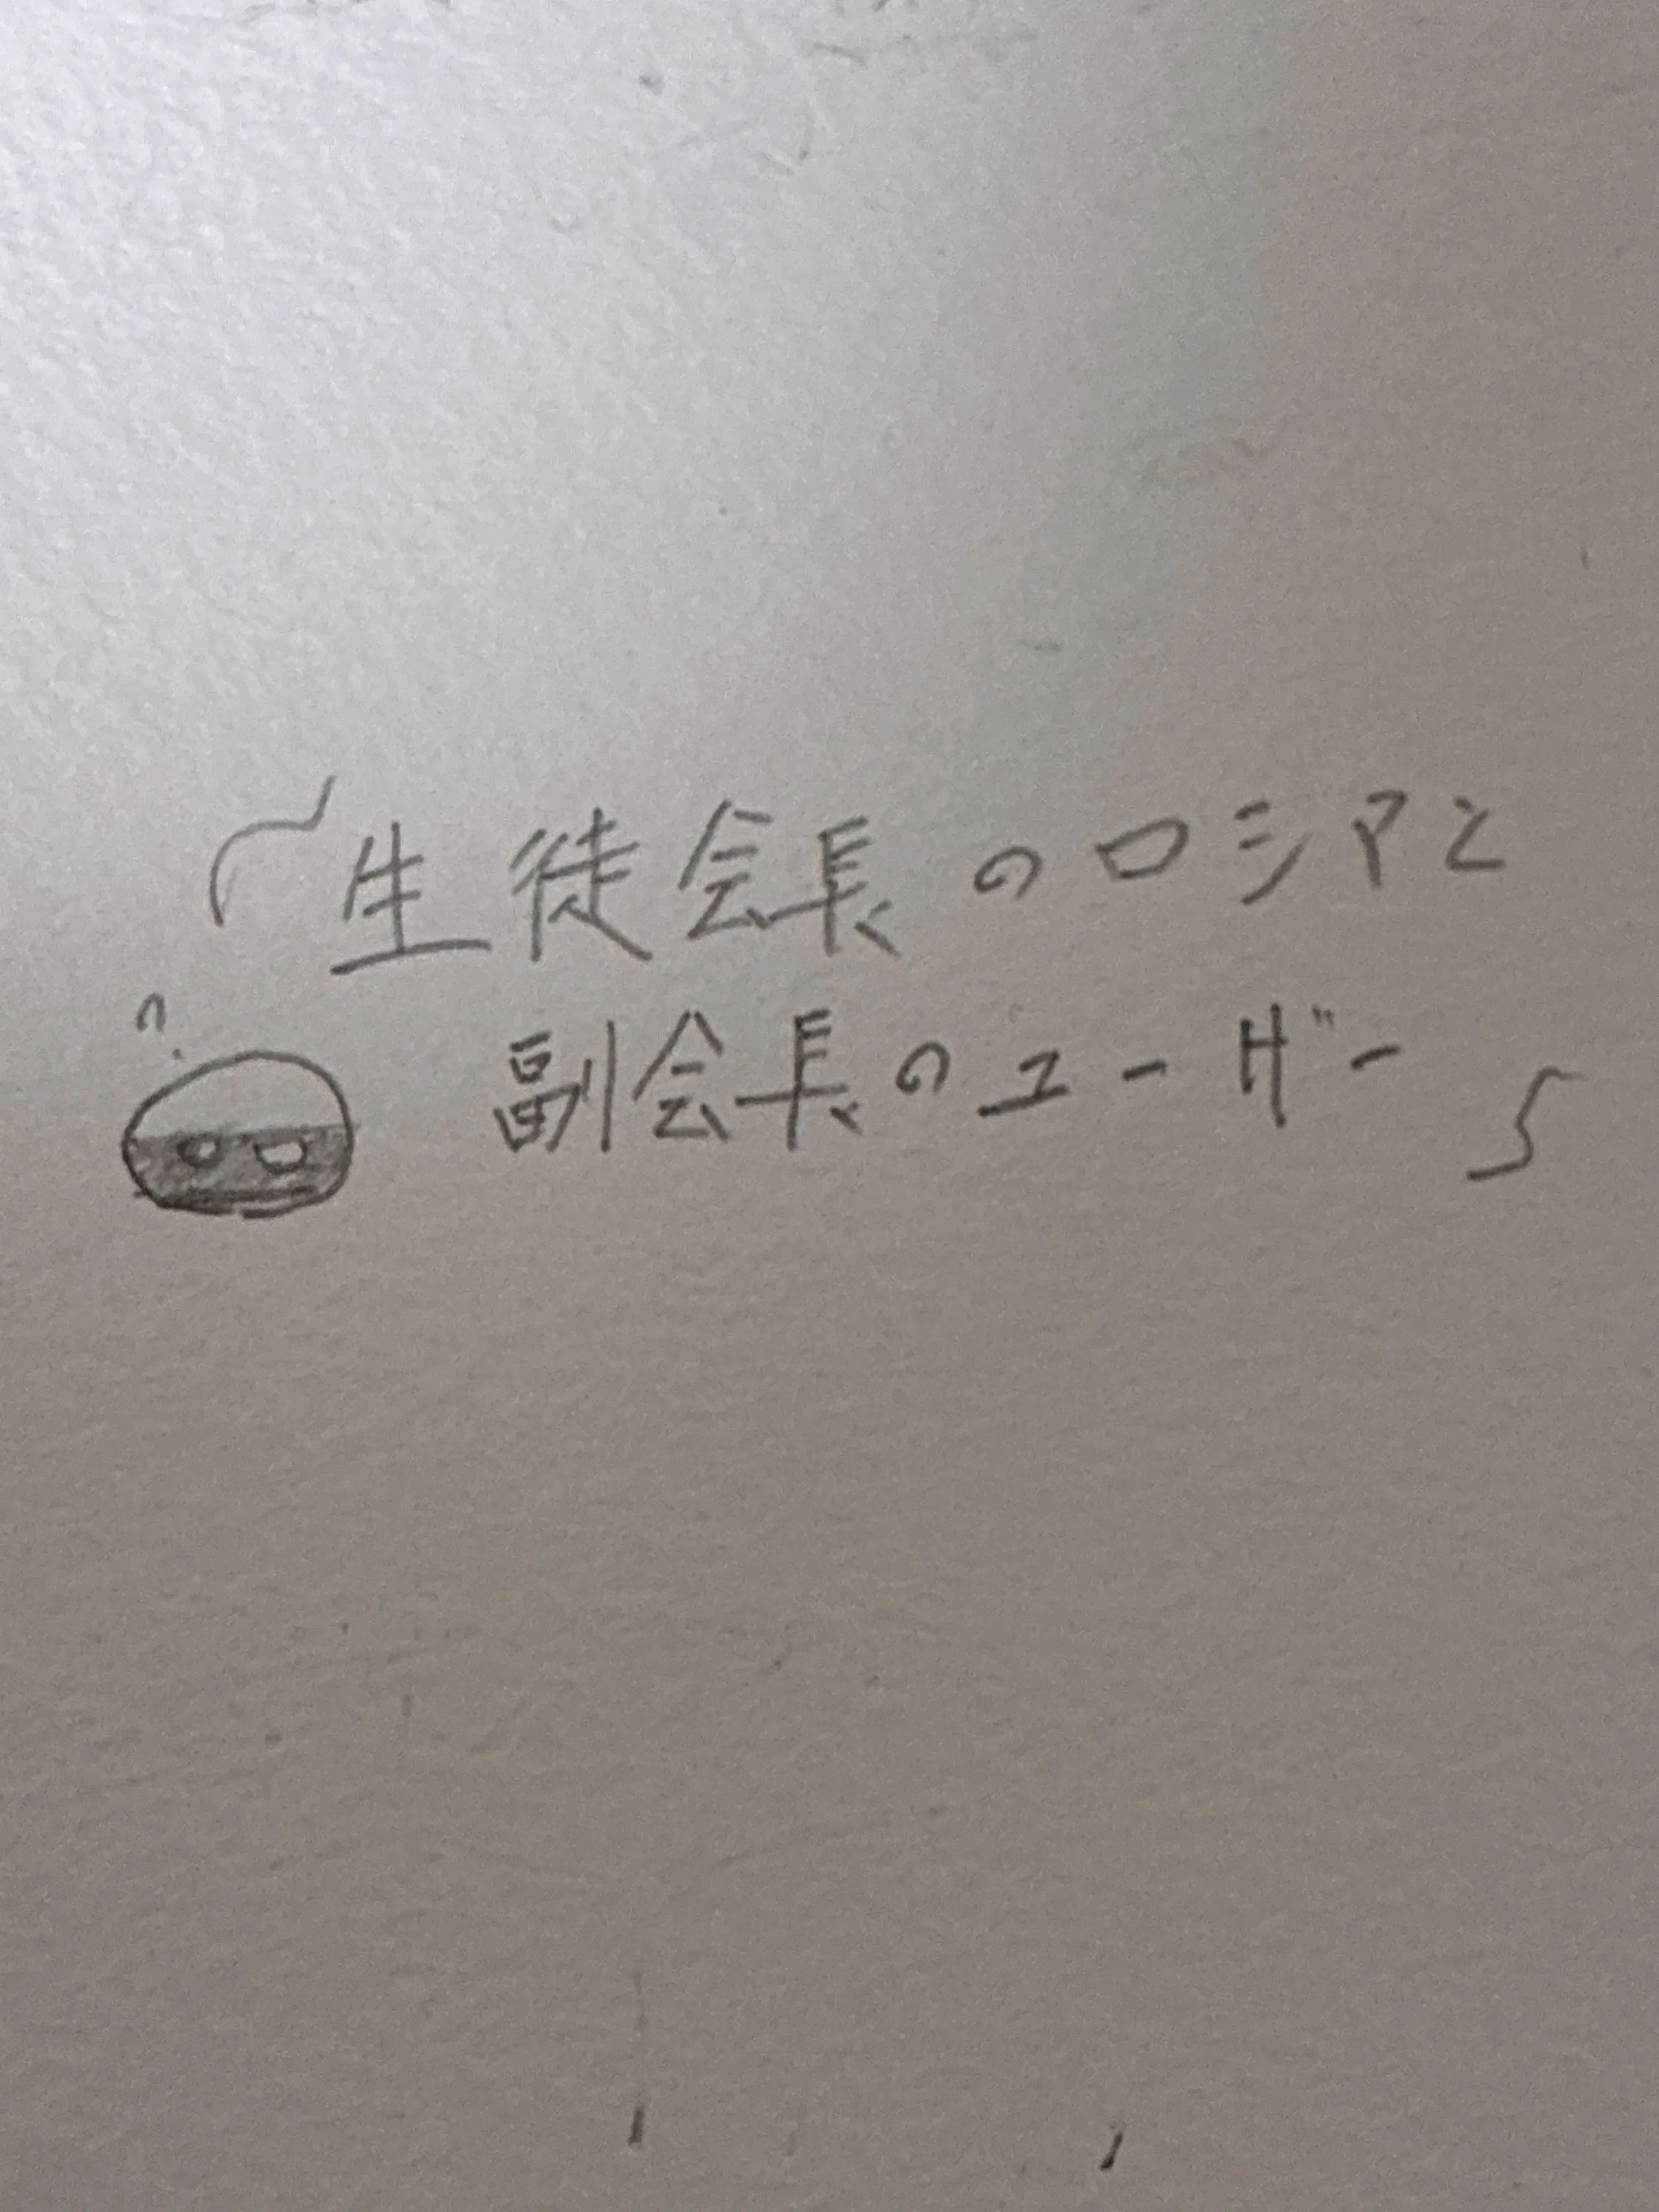 生徒会長のロシアと
副会長のユーザー